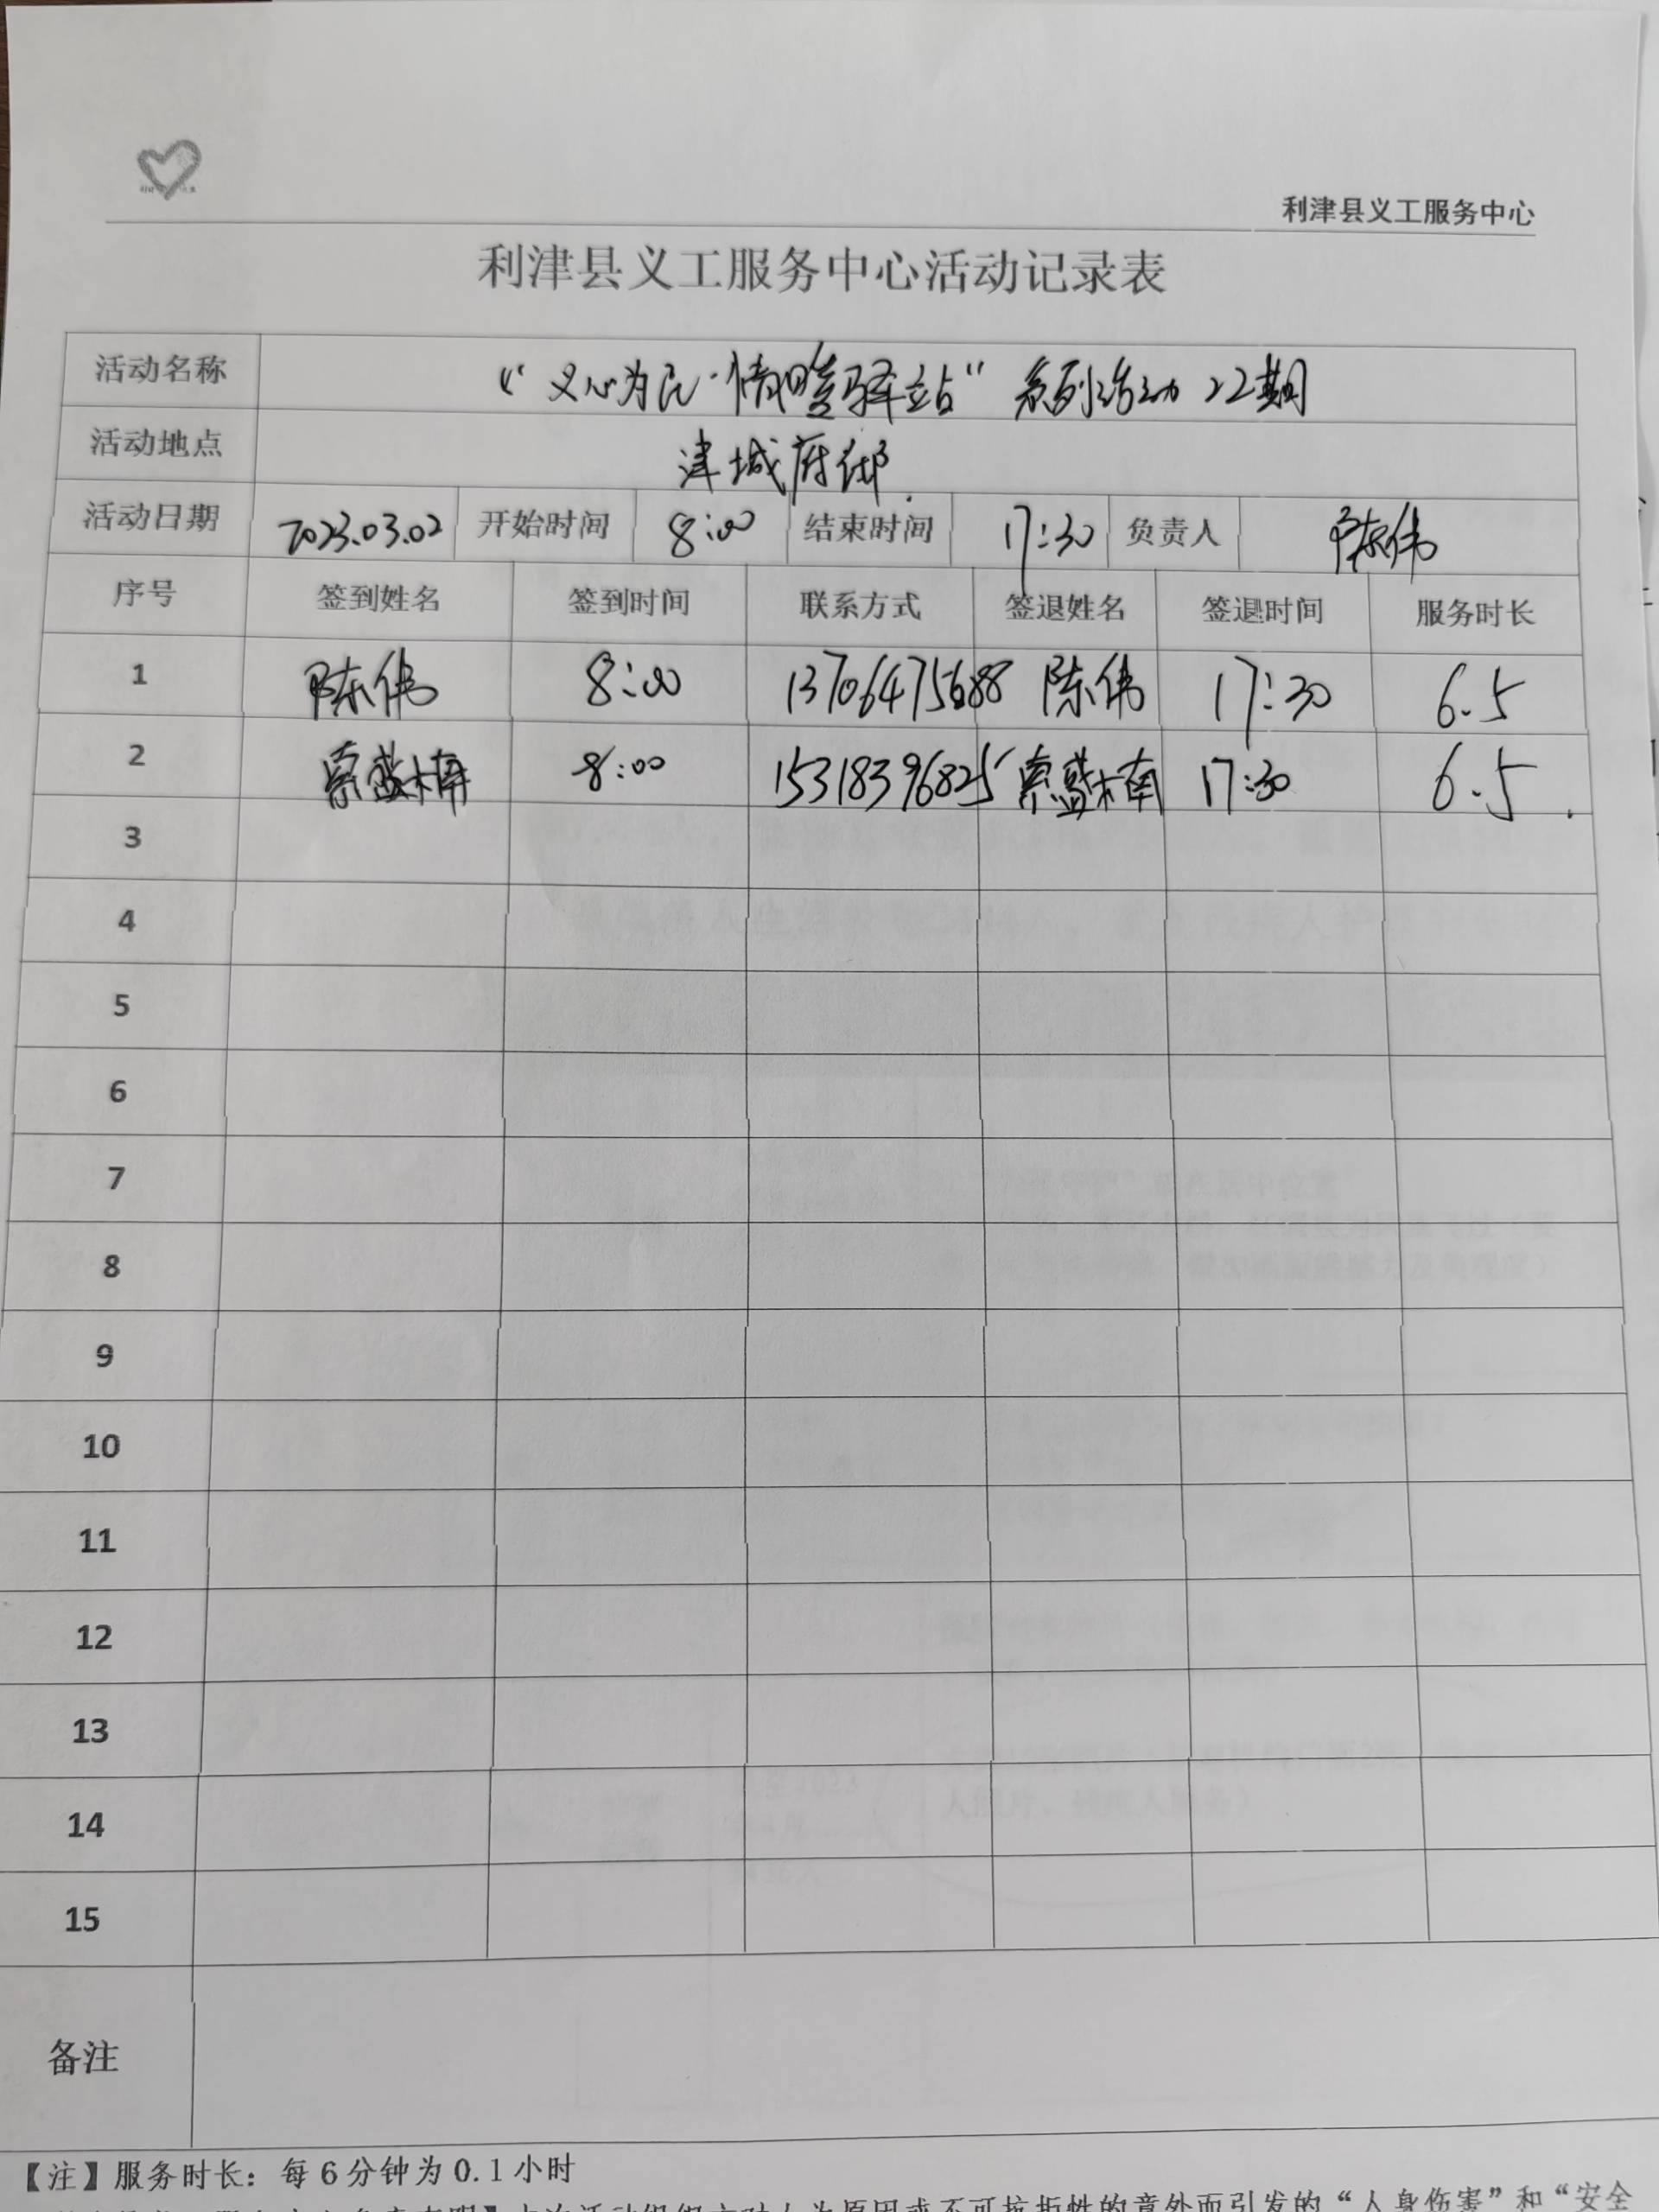 利津县义工服务中心
利津县义工服务中心活动记录表
活动名称 “义心为民·情暖驿站”系列活动22期
活动地点 津城府邸
活动日期 2023.03.02 开始时间 8:00 结束时间 17:30 负责人 陈伟
序号 签到姓名 签到时间 联系方式 签退姓名 签退时间 服务时长
1 陈伟 8:00 13706475688 陈伟 17:30 6.5
2 索盛楠 8:00 15318396825 索盛楠 17:30 6.5
3
4
5
6
7
8
9
10
11
12
13
14
15
备注
【注】服务时长：每6分钟为0.1小时
本次活动组织方对人为原因或不可抗拒性的意外而引发的“人身伤害”和“安全